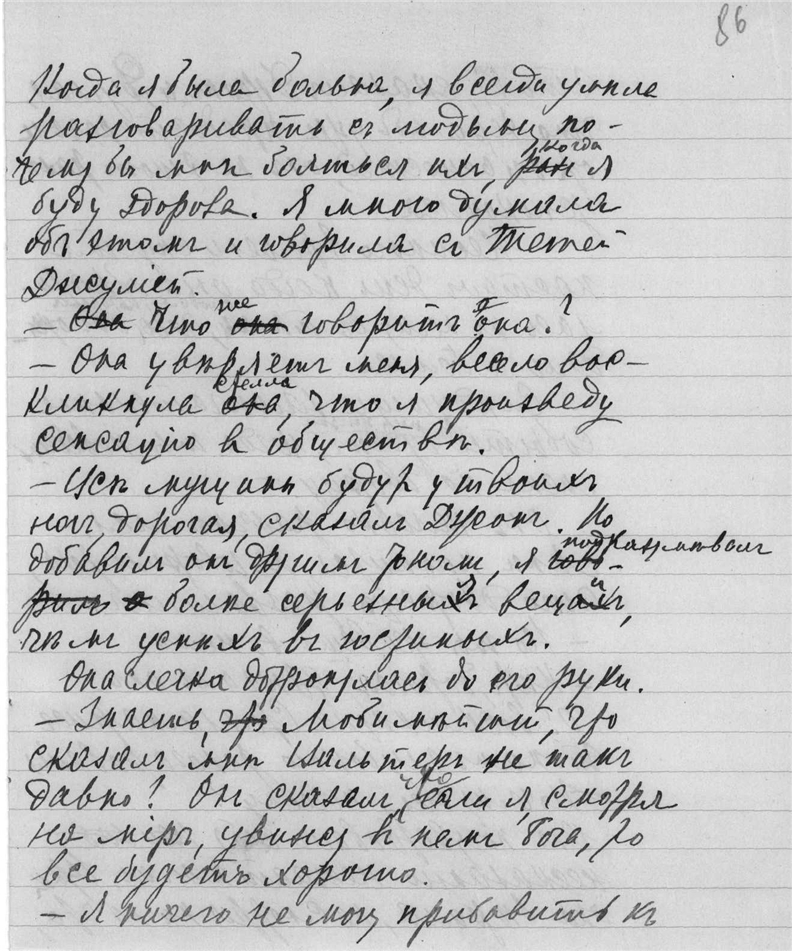 86
Когда я была больна, я всегда умѣла
разговаривать съ людьми, по-
чему бы мнѣ бояться ихъ, когда я
буду здорова. Я много думала
объ этомъ и говорила съ Тетей
Джуліей.
— Она Что же она говоритъ она?
— Она увѣряетъ меня, весело вос-
кликнула она Стелла, что я произведу
сенсацію въ обществѣ.
— Всѣ мущины будутъ у твоихъ
ногъ, дорогая, сказалъ Джонъ. Но
добавилъ онъ другимъ тономъ, я гово- подразумѣвалъ
рилъ о болѣе серьезныхъ вещахъ,
чѣмъ успѣхъ въ гостиныхъ.
Она слегка дотронулась до его руки.
— Знаешь, что любимѣйшій, что
сказалъ мнѣ Вальтеръ не такъ
давно? Онъ сказалъ, что если я, смотря
на міръ, увижу въ немъ Бога, то
все будетъ хорошо.
— Я ничего не могу прибавить къ